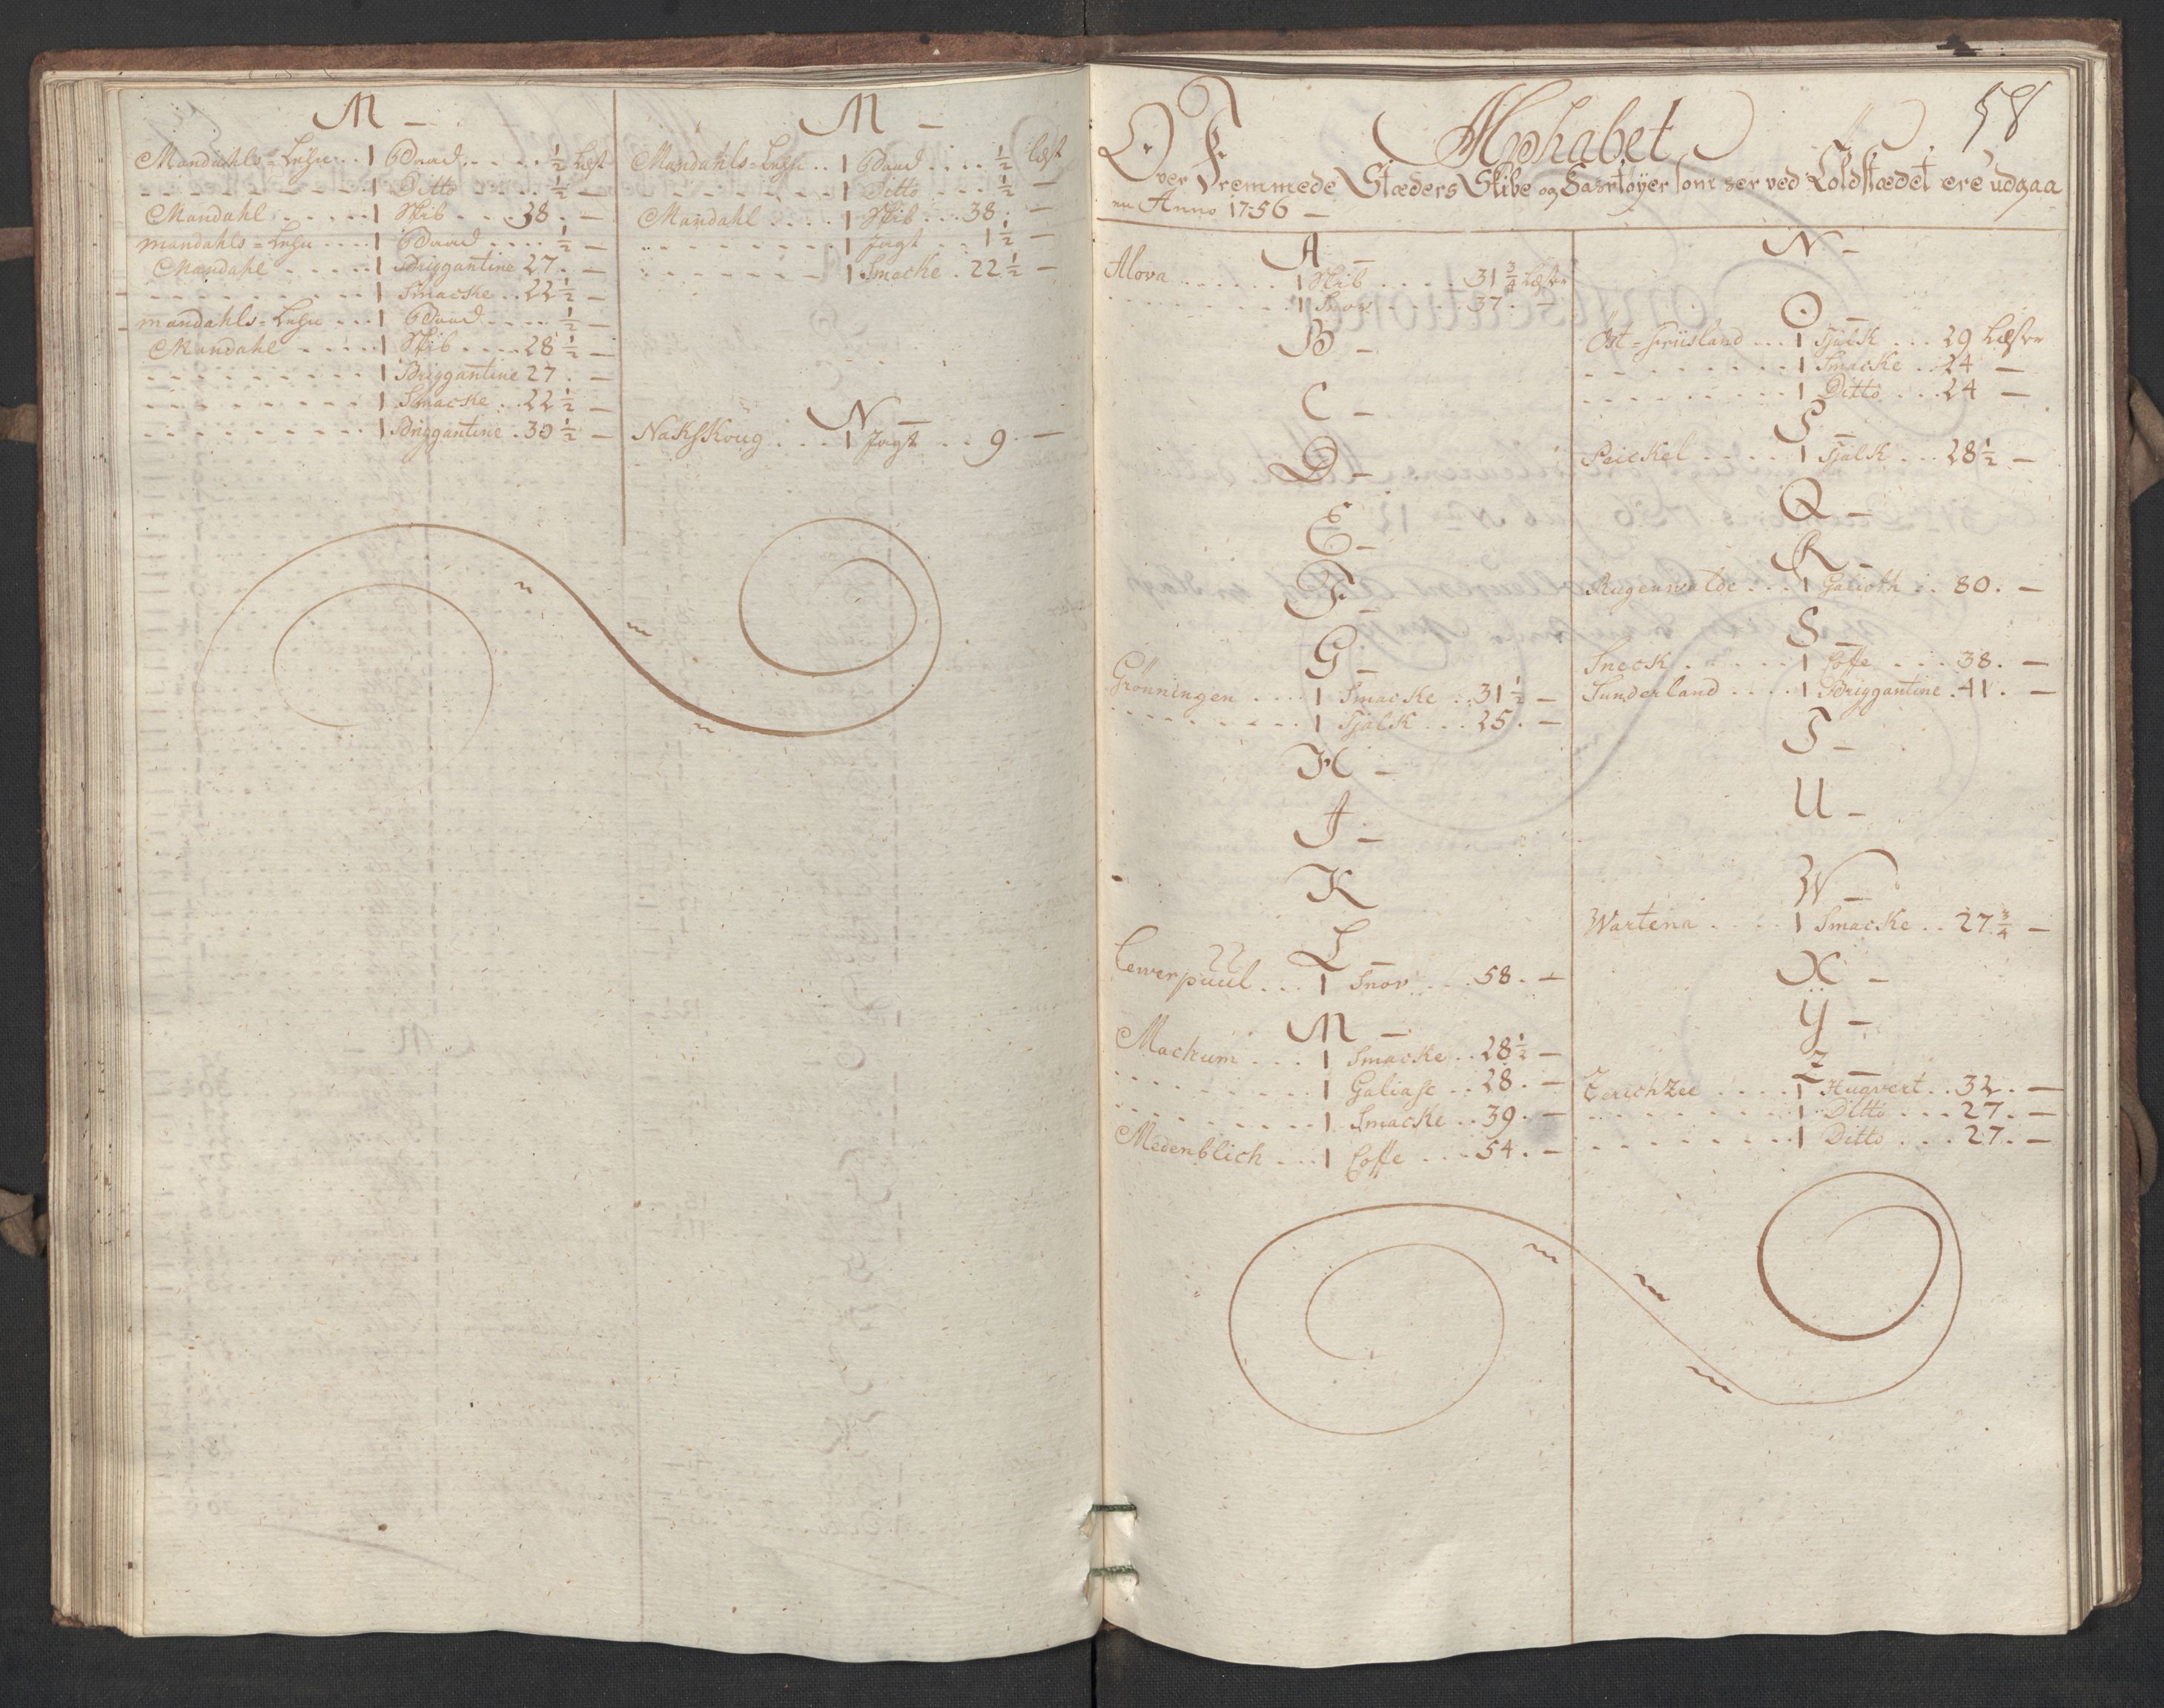 M —
Mandahls=Lehn .. 1 Baad ..... ½ Læst
- - - - - - - - 1 Ditto .... ½ —
Mandahl ..... 1 Skib ... 38. —
mandahls=Lehn ... 1 Baad ..... ½ —
Mandahl ..... 1 Briggantine 27. —
- - - - - - - - 1 Smacke .. 22½ —
mandahls=Lehn ... 1 Baad ..... ½ —
Mandahl ..... 1 Skib .... 28½ —
- - - - - - - - 1 Briggantine 27. —
- - - - - - - - 1 Smacke .. 22½ —
- - - - - - - - 1 Briggantine . 30½ —
M —
Mandahls=Lehn .. 1 Baad .... ½ Læst
- - - - - - - - 1 Ditto ... ½ —
Mandahl .... 1 Skib ... 38. —
- - - - - - - - 1 Jagt .. 1½ —
- - - - - - - - 1 Smacke . 22½ —
N —
Nakskoug .... 1 Jagt ... 9. —
58
Alphabet
Over Fremmede Stæders Skibe og Faartøyer som her ved Toldstædet ere udgaa
en Anno 1756 —
A —
Alova ...... 1 Skib ..... 31¾ Læster
- - - - - - - - 1 Snow ..... 37. —
B —
C —
D —
E —
F —
G —
Grönningen .... 1 Smacke .. 31½ —
- - - - - - - - 1 Tjalk ... 25. —
H —
I —
K
L —
22
Lewerpuul ... 1 Snow ... 58. —
M —
Mackum .... 1 Smacke .. 28½ —
- - - - - - - - 1 Galiase .. 28. —
- - - - - - - - 1 Smacke .. 39. —
Medenblich ... 1 Coffe ... 54. —
N —
O —
Öst=Friisland ... 1 Tjalk ... 29 Læster
- - - - - - - - 1 Smacke .. 24 —
- - - - - - - - 1 Ditto ... 24 —
P —
Peickel ..... 1 Tjalk ... 28½ —
Q —
R —
Rugenwalde ... 1 Galioth .. 80. —
S —
Sneeck ...... 1 Coffe ... 38. —
Sunderland .... 1 Briggantine . 41. —
T —
U —
W —
Wartena .... 1 Smacke .. 27¾ —
X —
Ÿ —
Z —
Zerichzee .... 1 Huqvert .. 32. —
- - - - - - - - 1 Ditto ... 27. —
- - - - - - - - 1 Ditto ... 27. —